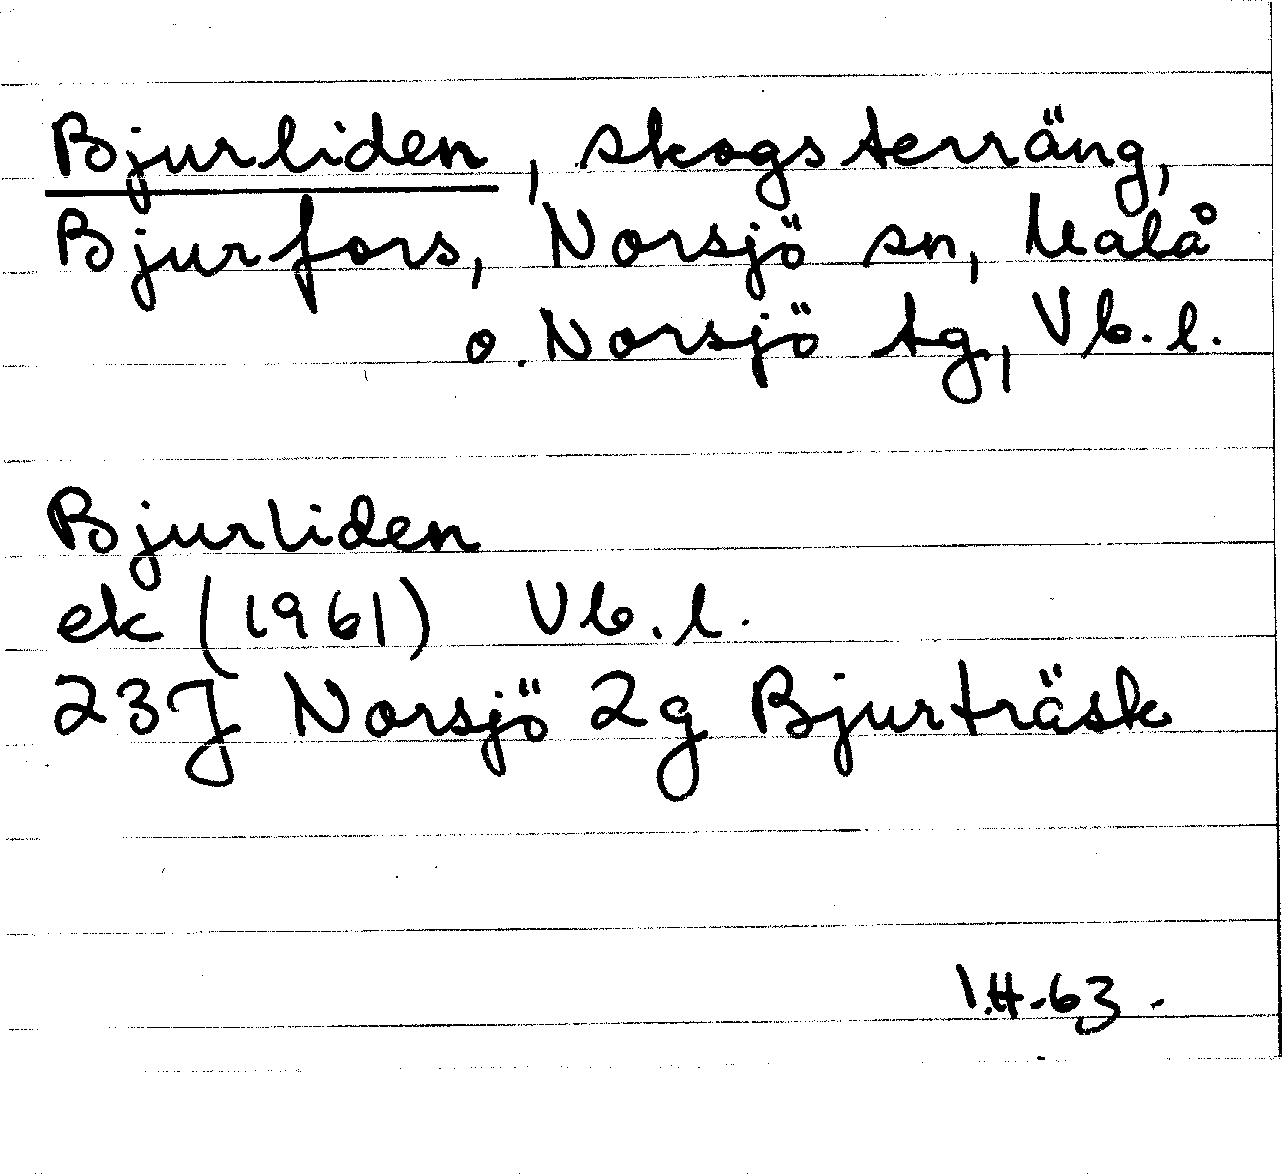 Bjurliden, skogsterräng,
Bjurfors, Norsjö sn, Malå
o. Norsjö tg, Vb. l.
Bjurliden
ek (1961) Vb. l.
23J Norsjö 2g Bjurträsk
I.H.-63.